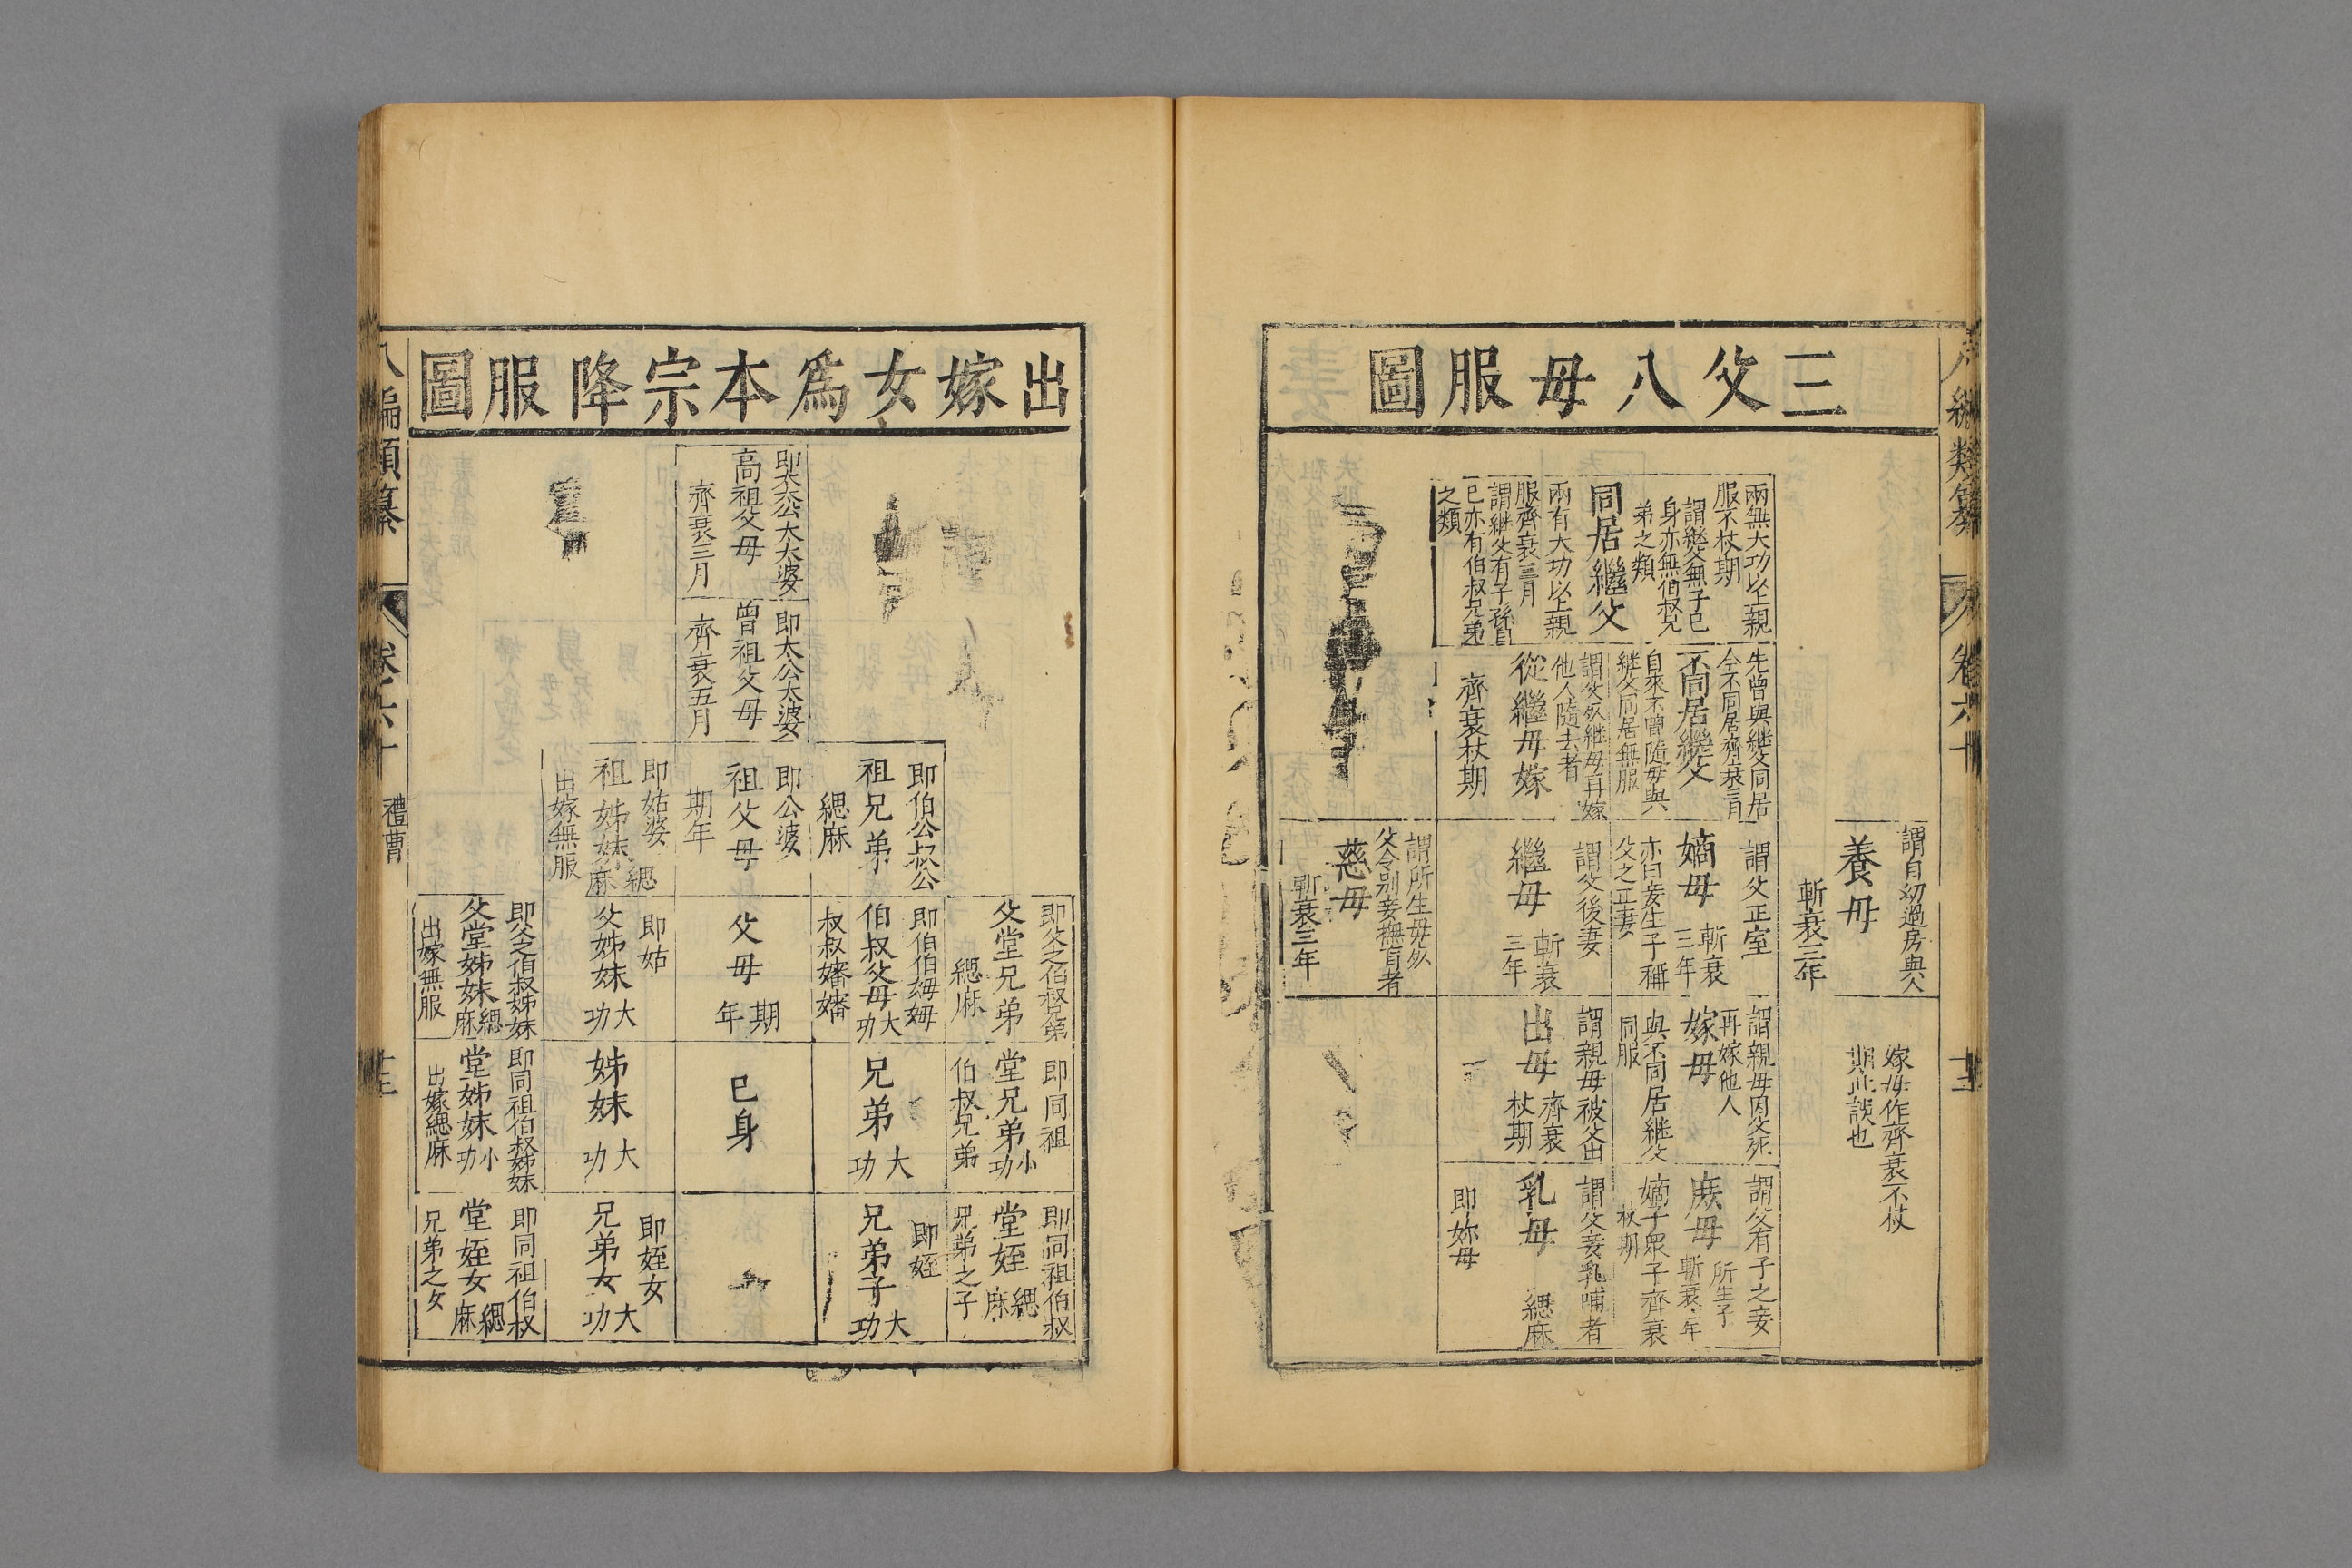 三父八母服圖
謂自幼過房與人
養母
斬衰三年
嫁母作齊衰不杖
期此誤也
兩無大功以上親
服不杖期
謂繼父無子已
身亦無伯叔兄
弟之類
同居繼父
兩有大功以上親
服齊衰三月
謂繼父有子孫自
已亦有伯叔兄弟
之類
先曾與繼父同居
今不同居齊衰三月
不同居繼父
自來不曾隨母與
繼父同居無服
謂父死繼母再嫁
他人隨去者
從繼母嫁
齊衰杖期
謂父正室
嫡母
斬衰
三年
亦曰妾生子稱
父之正妻
謂父後妻
繼母
斬衰
三年
謂所生母死
父令別妾撫育者
慈母
斬衰三年
謂親母因父死
再嫁他人
嫁母
與不同居繼父
同服
謂親母被父出
出母
齊衰
杖期
謂父有子之妾
庶母
所生子
斬衰三年
嫡子眾子齊衰
杖期
謂父妾乳哺者
乳母
緦麻
即妳母
卷六十
出嫁女為本宗降服圖
即太太公太太婆
高祖父母
齊衰三月
即太公太婆
曾祖父母
齊衰五月
即伯公叔公
祖兄弟
緦麻
即公婆
祖父母
期年
即姑婆
祖姊妹
緦麻
出嫁無服
即父之伯叔兄弟
父堂兄弟
緦麻
即伯伯姆姆
伯叔父母
大功
叔叔嬸嬸
父母
期年
即姑
父姊妹
大功
即父之伯叔姊妹
父堂姊妹
緦麻
出嫁無服
即同祖
堂兄弟
小功
伯叔兄弟
兄弟
大功
已身
姊妹
大功
即同祖伯叔姊妹
堂姊妹
小功
出嫁緦麻
即同祖伯叔
堂姪
緦麻
兄弟之子
即姪
兄弟子
大功
即姪女
兄弟女
大功
即同祖伯叔
堂姪女
緦麻
兄弟之女
八編類纂
卷六十
禮曹